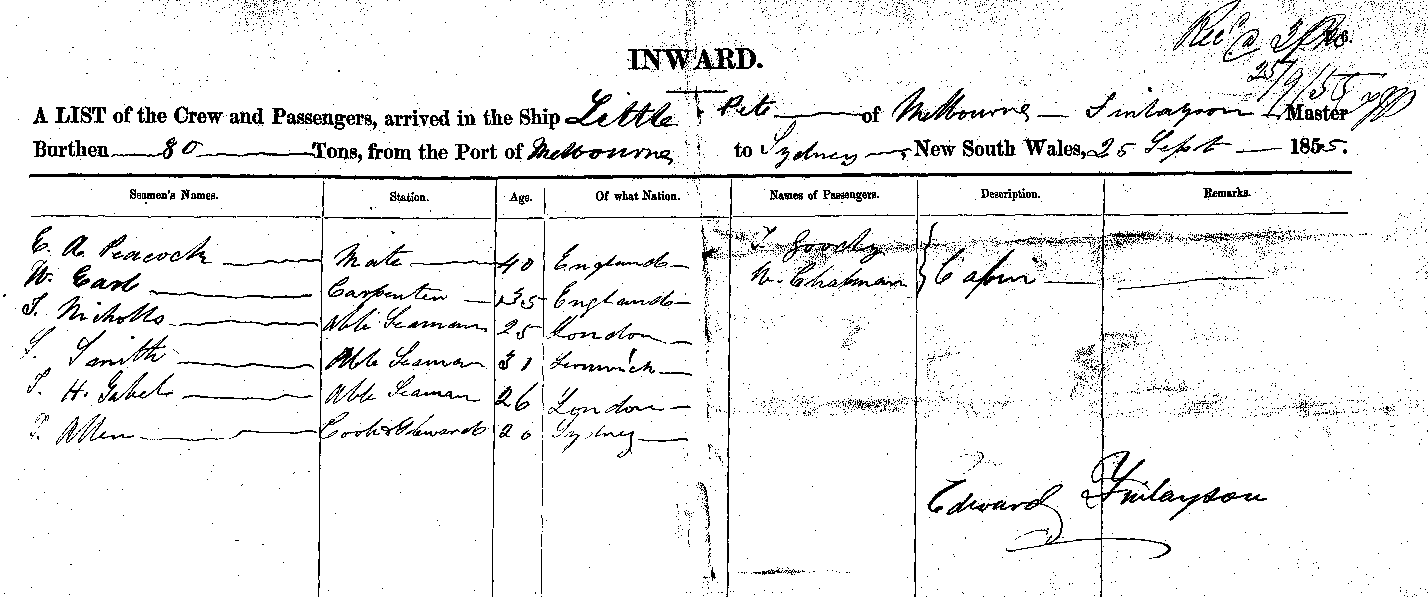 Rec'd
25/9/55
INWARD.
A LIST of the Crew and Passengers, arrived in the Ship Little Pete of Melbourne Finlayson Master
Burthen 80 Tons, from the Port of Melbourne to Sydney, New South Wales, 25 Sept 1855.
Seamen's Names. Station. Age. Of what Nation. Names of Passengers. Description. Remarks.
E. A. Peacock Mate 40 England Goochy
W. Earl Carpenter 35 England W. Chapman Cabin
Nicholls Able Seaman 25 London
Smith Able Seaman 31
H. Able Seaman 26 London
Allen Cook & Steward 20 Sydney
Edward Finlayson